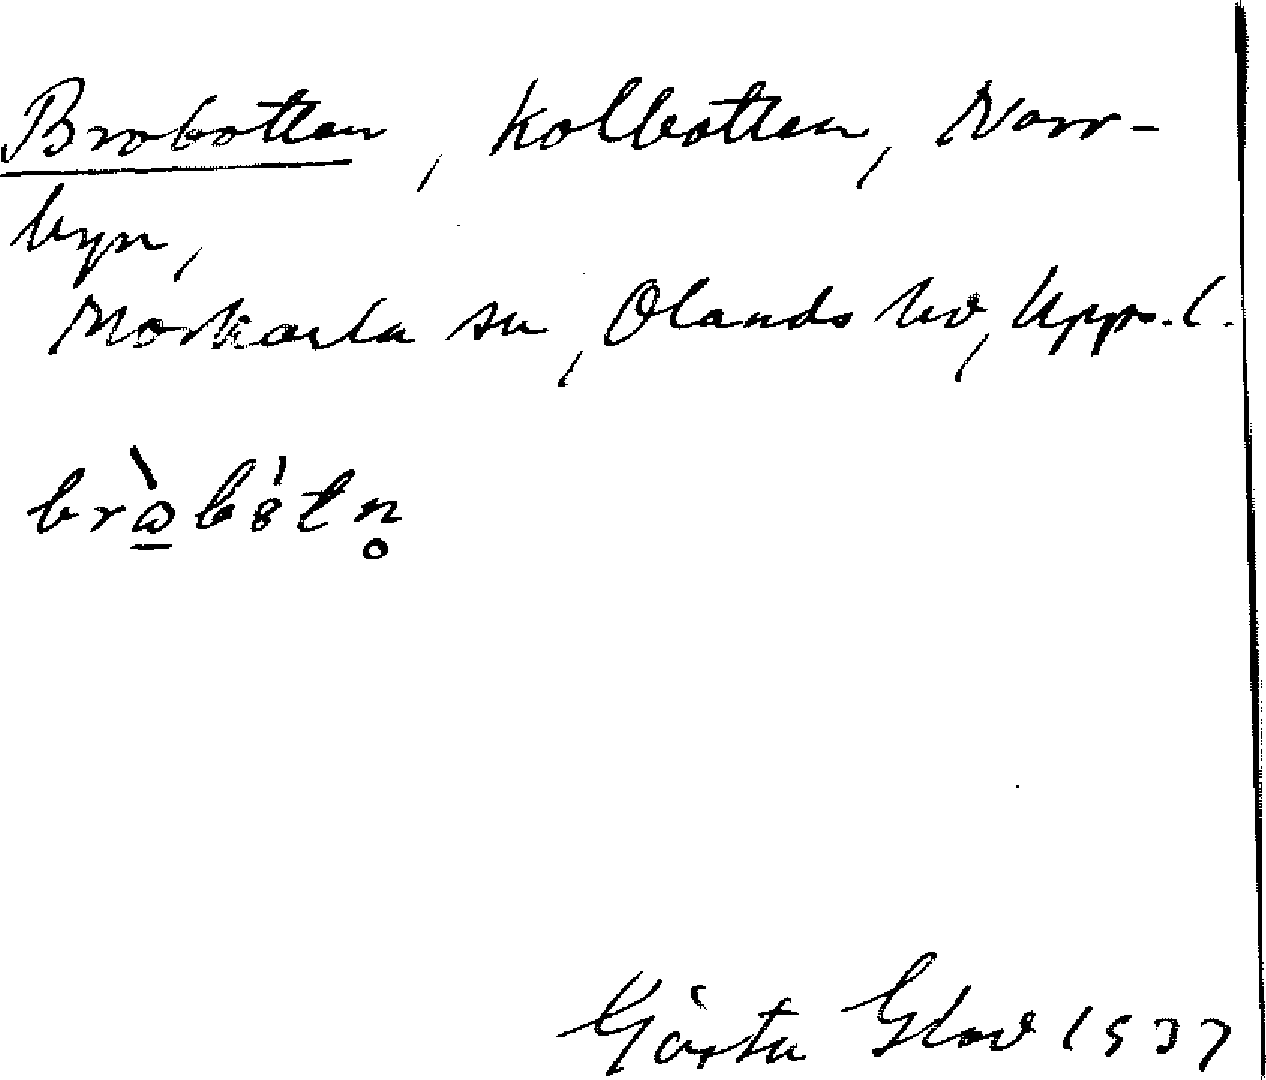 Brobotten, Kolbotten, Norr-
byn,
Morkarla sn, Olands hd, Upps. l.
Gösta 1937